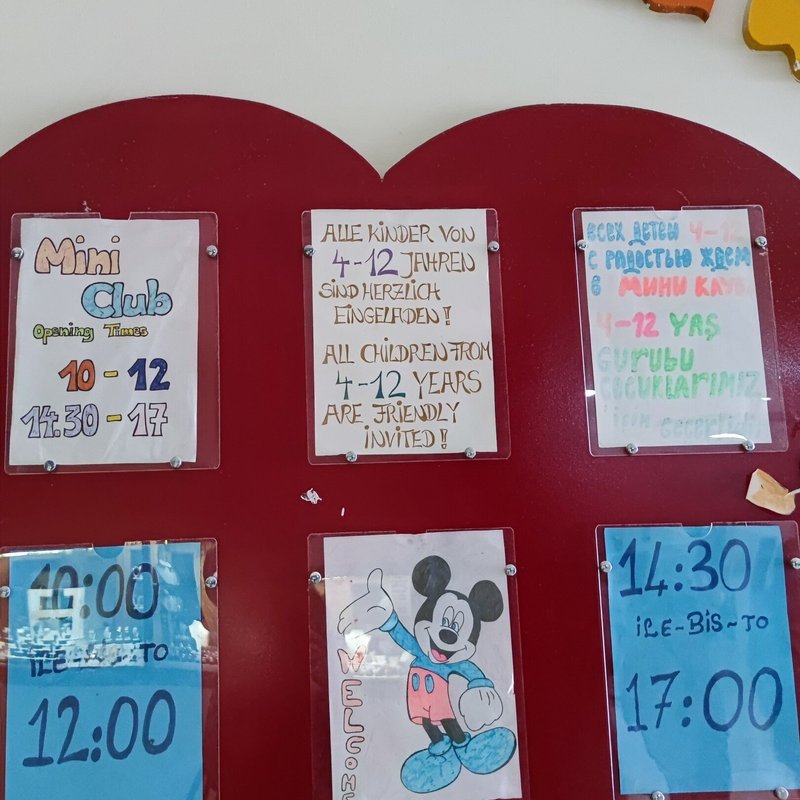 Mini
Club
Opening Times
10 - 12
14.30 - 17
ALLE KINDER VON
4-12 JAHREN
SIND HERZLICH
EINGELADEN!
ALL CHILDREN FROM
4-12 YEARS
ARE FRIENDLY
INVITED!
ВСЕХ ДЕТЕЙ 4-12
С РАДОСТЬЮ ЖДЕМ
В МИНИ КЛУБ
4-12 YAŞ
GURUBU
ÇOCUKLARIMIZ
için geçerlidir
10:00
iLE-BiS-TO
12:00
WELCOME
14:30
iLE-BiS-TO
17:00